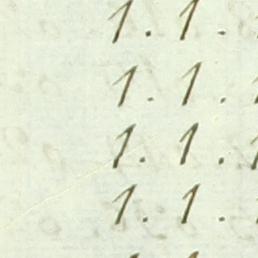 1. 1.
1. 1.
1. 1.
1. 1.